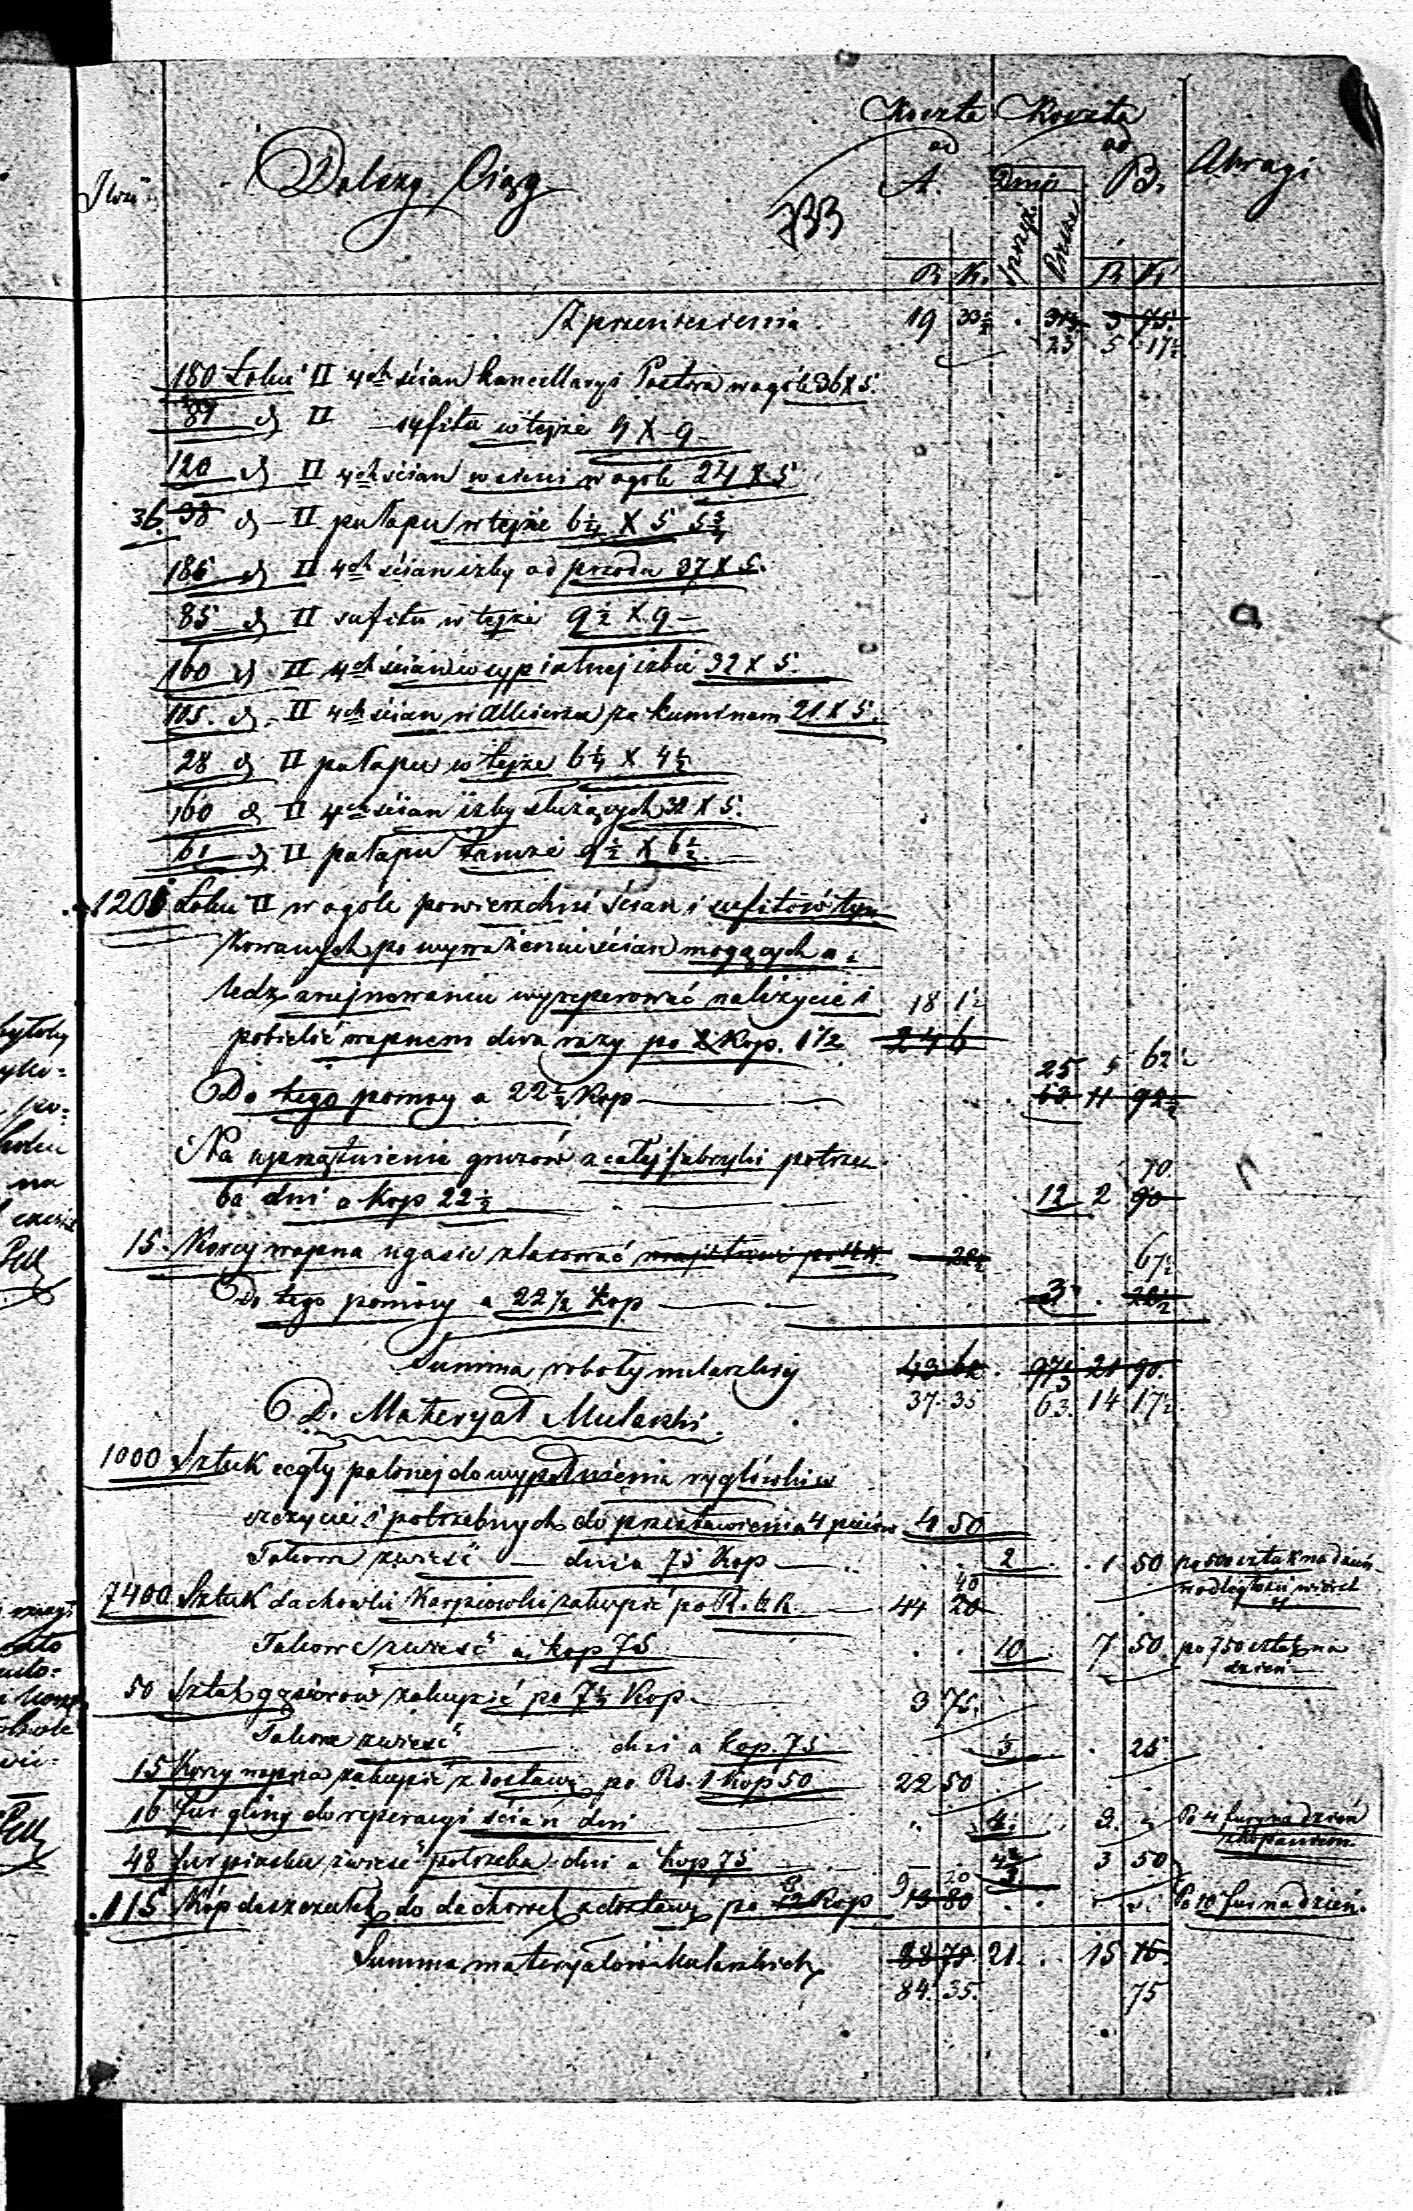 Koszta Koszta
ad ad
Ilość Dalszy Ciąg 733 A. Dni B. Uwagi
sprzęż. Piesze
R. K. R. K.
Z przeniesienia 19 33½ . 5 75
23 5 17½
180 Łokci □ 4ch ścian kancellaryi Pastora w ogóle 36 X 5.
81 d □ sufitu w tejże 9 X 9
120 d □ 4ch ścian w sieni w ogóle 24 X 5
36. 38 d □ pułapu w tejże 6¼ X 5 5¾
185 d □ 4ch ścian izby od przodu 37 X 5.
85 d □ sufitu w tejże 9½ X 9
160 d □ 4ch ścian w sypialnej izbie 32 X 5.
105. d □ 4ch ścian w alkierzu za kuminem 21 X 5.
28 d □ pałapu w tejże 6¼ X 4½
160 d □ 4ch ścian izby służących 32 X 5.
61 d □ pałapu tamże 9½ X 6½
1201 Łokci □ w ogóle powierzchni ścian i sufitów tyn
kowanych po wyważeniu ścian mogących u=
ledz zrujnowaniu wyreperować należycie i 18 1½
pobielić wapnem dwa razy po 2 Kop. 1½ 24 6
25 5 62½
Do tego pomocy a 22½ Kop 53 11 92½
Na uprzątnienie gruzów z całej fabryki potrze 70
ba dni a kop 22½ 12 2 90
15. Korcy wapna ugasić zlasować 22½ 67½
Do tego pomocy a 22½ kop 3 . 22½
Summa roboty mularskiej 43 62 . 97½ 21 90.
37. 35 63. 14 17½
D. Materyał Mularski.
1000 Sztuk cegły palonej do wypełnienia ryglówki w
szczycie i potrzebnych do przestawienia 4 pieców 4 50
Takowe zwieść dnia 75 Kop 2 . 1 50 po 500 sztuk na dzień
40 w odległości wiorst
7400 Sztuk dachówki Karpiowki zakupić po R. 6 k 44 20
Takowe zwieść a kop 75 10 7 50. po 750 sztuk na
dzień
50 Sztuk gąsiorów zakupić po 7½ Kop 3 75.
Takowe zwieść dni a kop. 75 ⅓ . 25
15 Korcy wapna zakupić z dostawą po Rs. 1 kop 50 22 50
16 fur gliny do reperacyi ścian dni 4 3. Po 4 fury na dzień
z kopaniem
48 fur piasku zwieść potrzeba dni a kop 75 4⅔ 3 50
9 20
115 Kóp deszczułek do dachówek z dostawą po 12 Kop 13 80 Po 10 fur na dzień.
8
Summa materyałów Mularskich 88 70 21. . 15 75
84. 35. 75